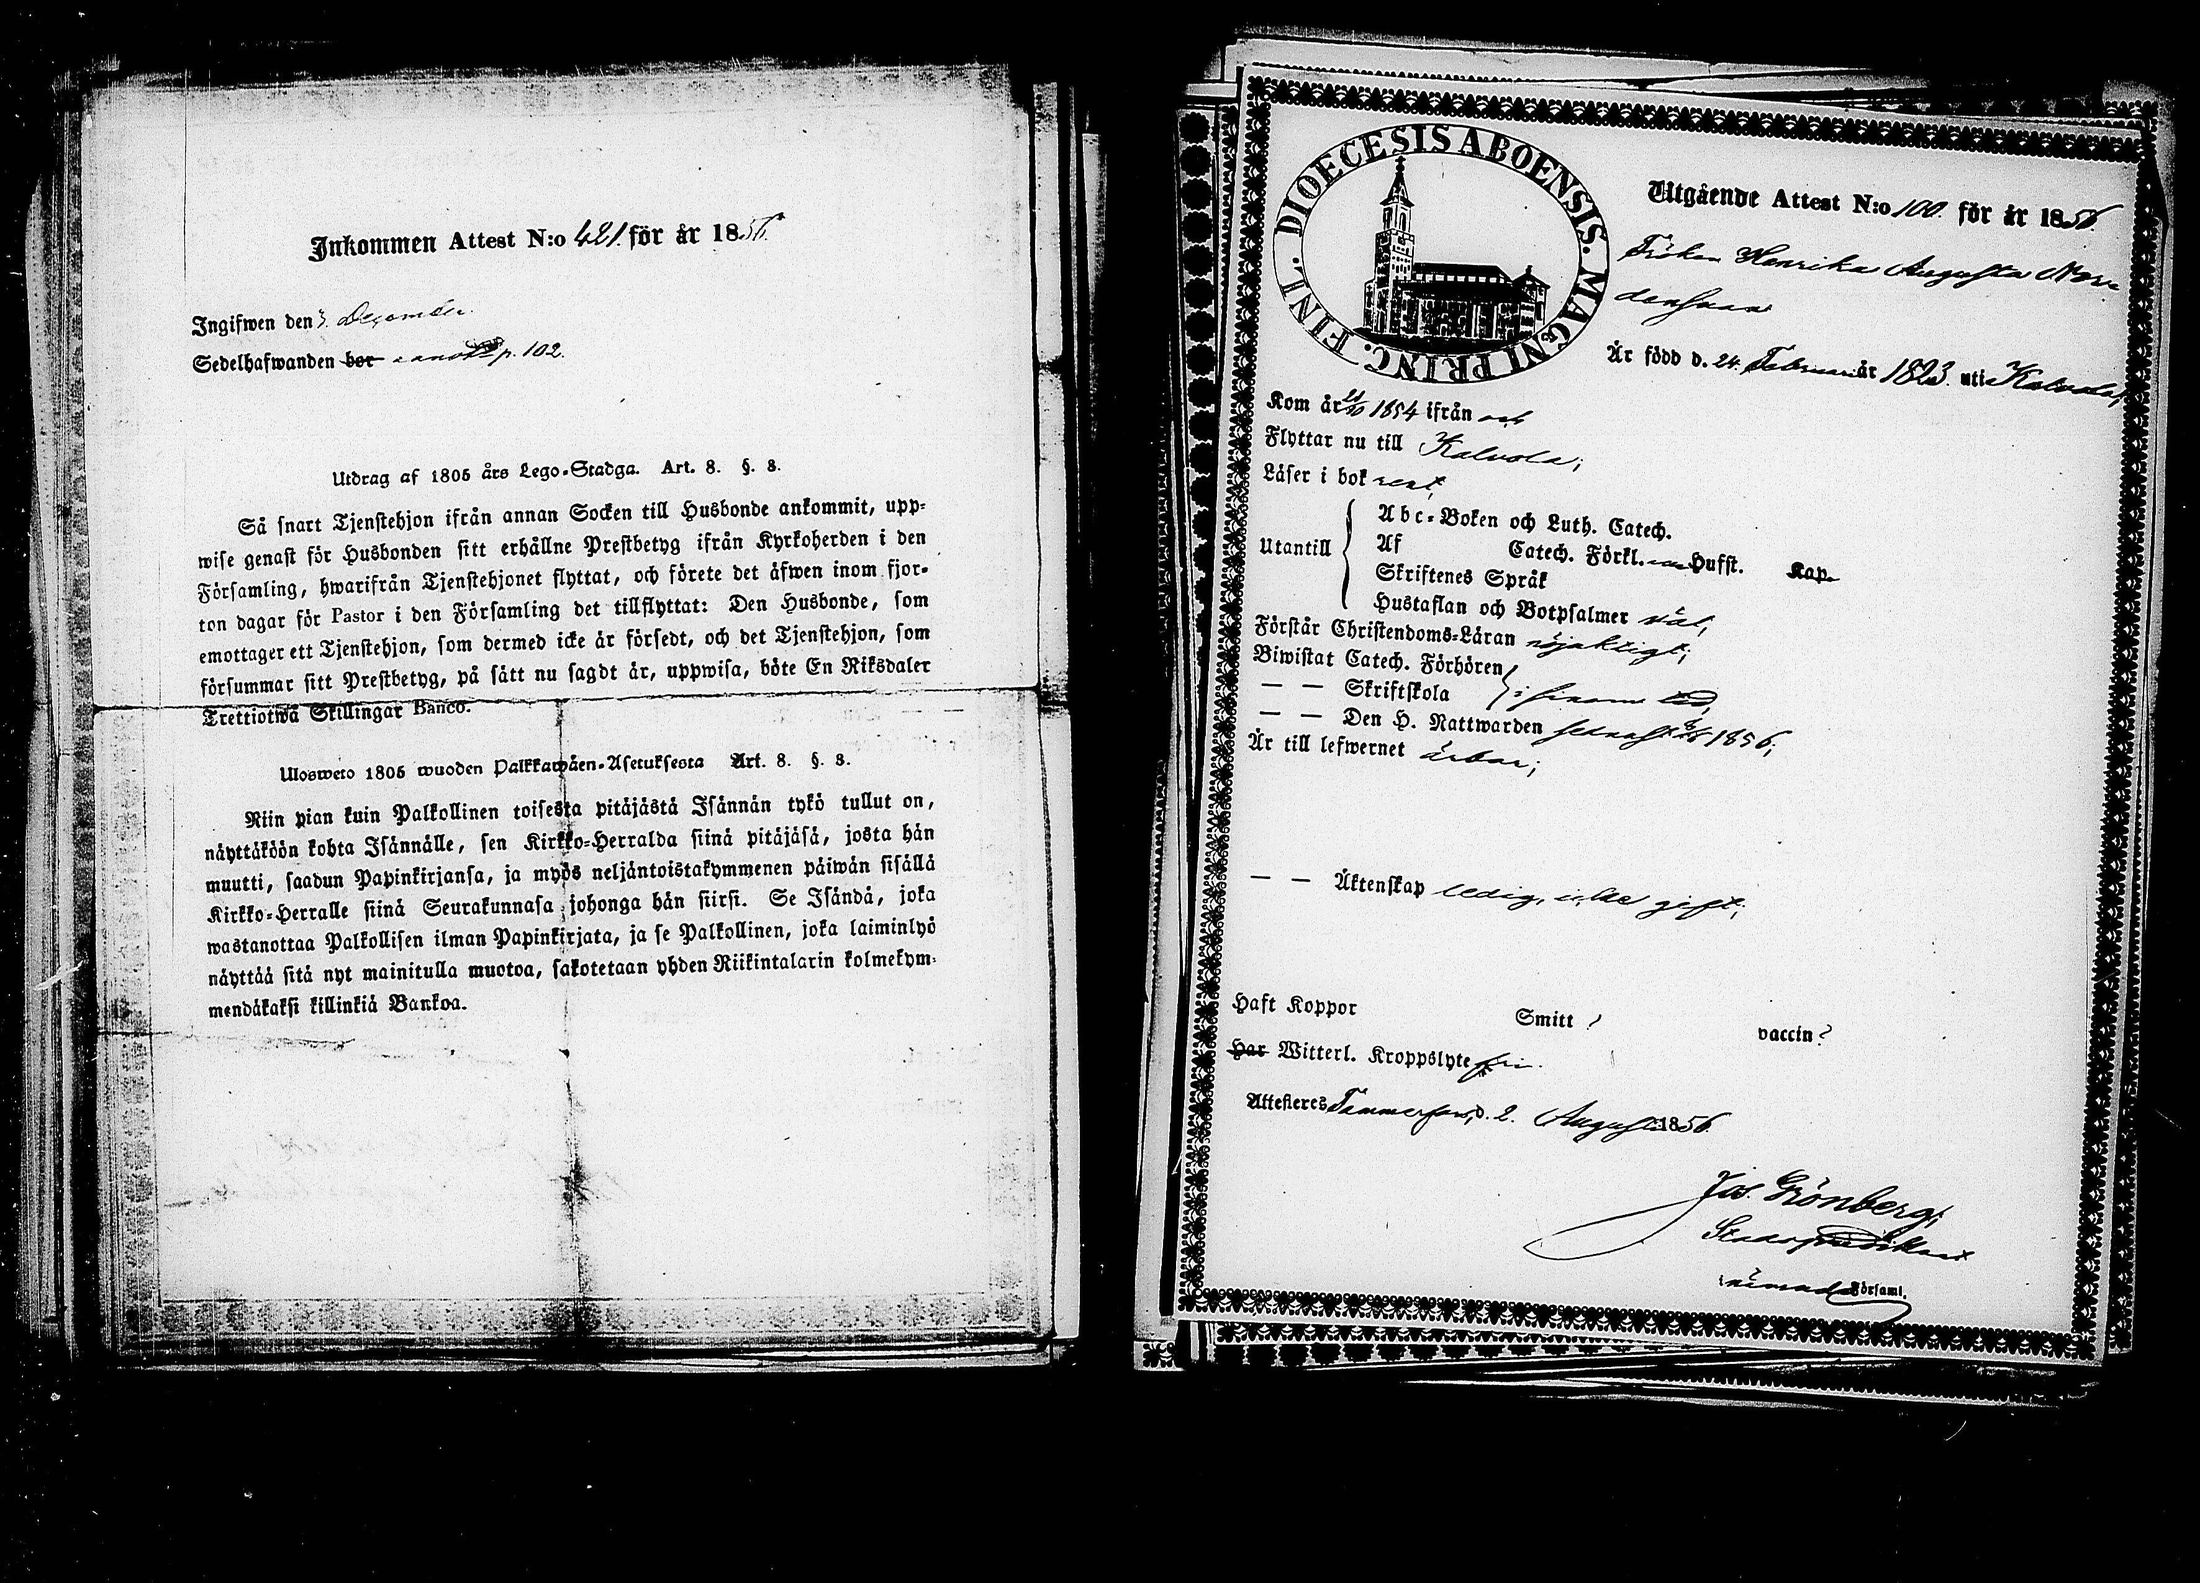 Inkommen Attest N:o 421. för år 1856.
Ingifwen den 3. December.
Sedelhafwanden bor anott p. 102.
Utdrag af 1805 års Lego-Stadga. Art. 8. §. 8.
Så snart Tjenstehjon ifrån annan Socken till Husbonde ankommit, upp-
wise genast för Husbonden sitt erhållne Prestbetyg ifrån Kyrkoherden i den
Församling, hwarifrån Tjenstehjonet flyttat, och förete det äfwen inom fjor-
ton dagar för Pastor i den Församling det tillflyttat: Den Husbonde, som
emottager ett Tjenstehjon, som dermed icke är försedt, och det Tjenstehjon, som
försummar sitt Prestbetyg, på sätt nu sagdt är, uppwisa, böte En Riksdaler
Trettiotwå Skillingar Banco.
Ulosweto 1805 wuoden Palkkawäen-Asetuksesta Art. 8. §. 8.
Niin pian kuin Palkollinen toisesta pitäjästä Isännän tykö tullut on,
näyttäköön kohta Isännälle, sen Kirkko-Herralda siinä pitäjäsä, josta hän
muutti, saadun Papinkirjansa, ja myös neljäntoistakymmenen päiwän sisällä
Kirkko-Herralle siinä Seurakunnasa johonga hän siirsi. Se Isändä, joka
wastanottaa Palkollisen ilman Papinkirjata, ja se Palkollinen, joka laiminlyö
näyttää sitä nyt mainitulla muotoa, sakotetaan yhden Riikintalarin kolmekym-
mendäkaksi killinkiä Bankoa.
DIOECESIS ABOENSIS. MAGNI PRINC. FINL.
Utgående Attest N:o 100. för år 1856.
Fröken Henrika Augusta Nor-
denswan
Är född d. 24. Februari år 1823. uti Kalvola;
Kom år 21/10 1854 ifrån och
Flyttar nu till Kalvola;
Läser i bok rent,
Utantill
Abc-Boken och Luth. Catech.
Af Catech. Förkl. Hufst. Kap.
Skriftenes Språk
Hustaflan och Botpsalmer väl,
Förstår Christendoms-Läran nöjaktigt;
Biwistat Catech. Förhören
— — Skriftskola i sinom tid,
— — Den H. Nattwarden senast 1856;
Är till lefwernet ärbar;
— — Äktenskap ledig, icke gift;
Haft Koppor Smitt ? vaccin ?
Har Witterl. Kroppslyte fri.
Attesteres Tammerfors, d. 2. August 1856.
Jos. Grönberg,
Stadspredikant
nämnde Församl.